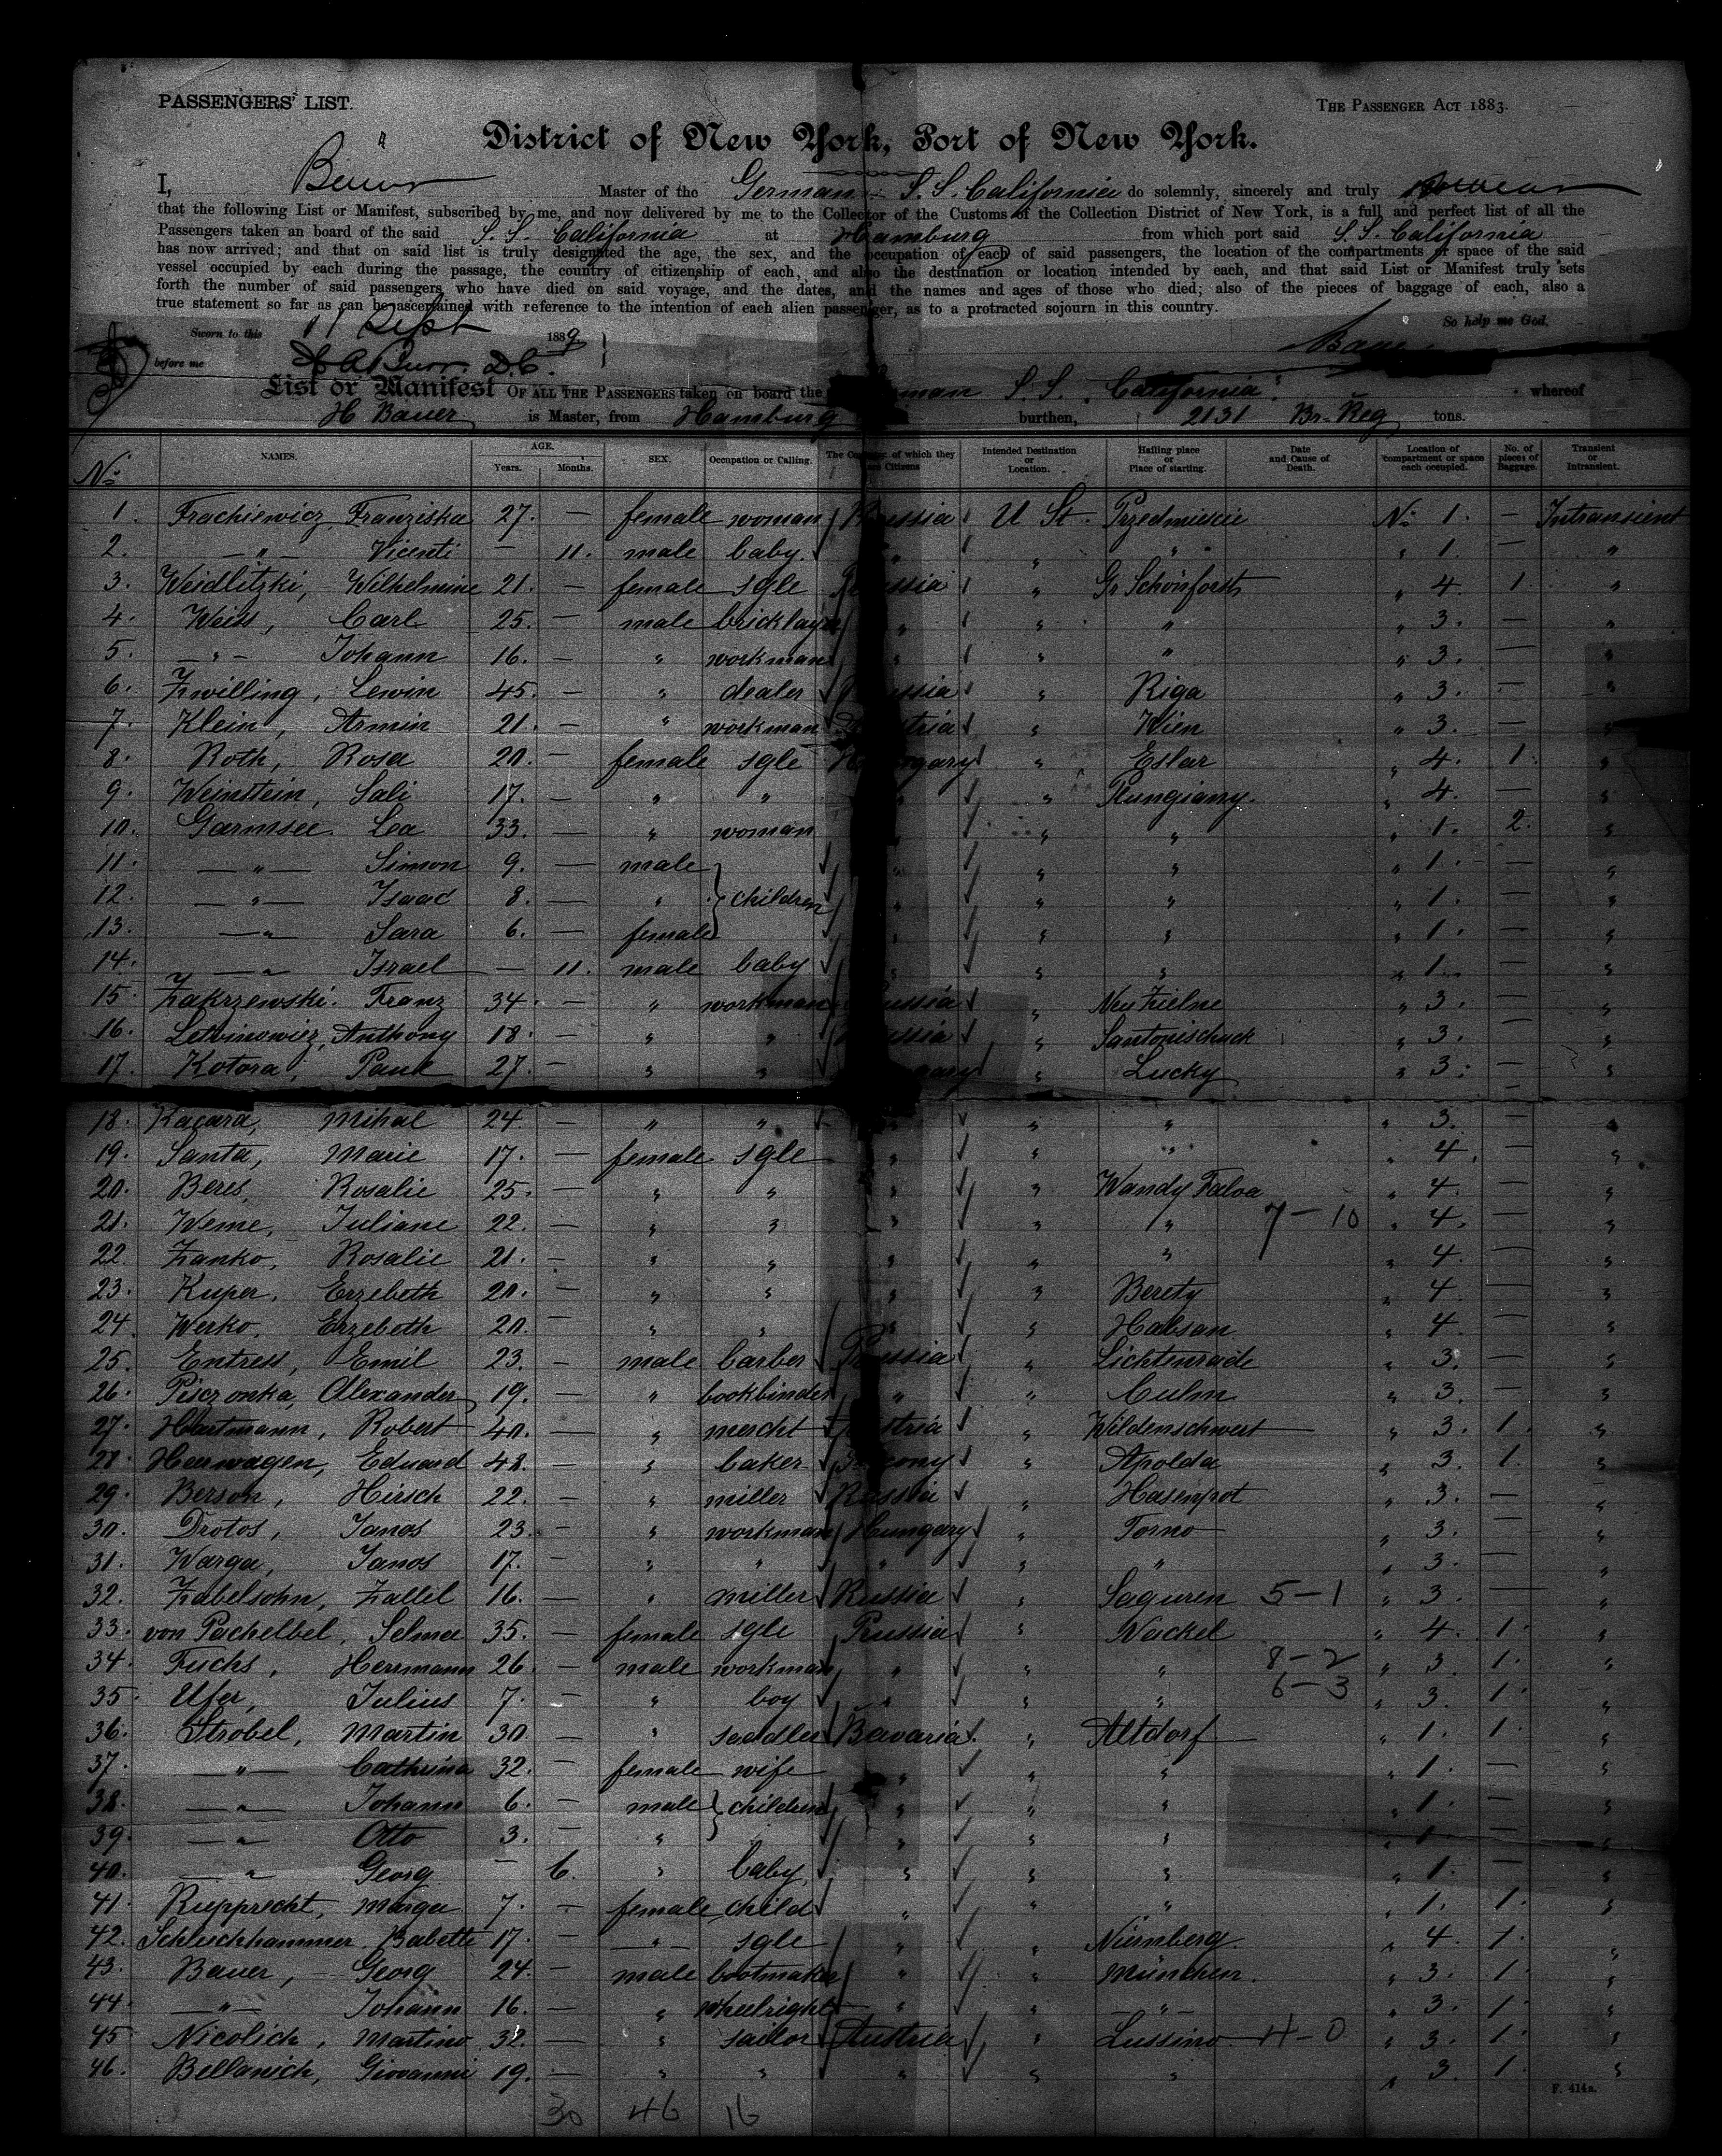 PASSENGERS' LIST.
THE PASSENGER ACT 1883.
District of New York, Port of New York.
I, Bauer Master of the German S.S. California do solemnly, sincerely and truly swear
that the following List or Manifest, subscribed by me, and now delivered by me to the Collector of the Customs of the Collection District of New York, is a full and perfect list of all the
Passengers taken an board of the said S.S. California at Hamburg from which port said S.S. California
has now arrived; and that on said list is truly designated the age, the sex, and the occupation of each of said passengers, the location of the compartments or space of the said
vessel occupied by each during the passage, the country of citizenship of each, and also the destination or location intended by each, and that said List or Manifest truly sets
forth the number of said passengers who have died on said voyage, and the dates, and the names and ages of those who died; also of the pieces of baggage of each, also a
true statement so far as can be ascertained with reference to the intention of each alien passenger, as to a protracted sojourn in this country.
Sworn to this 11 Sept 1889
So help me God.
before me D.C.
Bauer
List or Manifest OF ALL THE PASSENGERS taken on board the German S.S. California whereof
H Bauer is Master, from Hamburg burthen, 2131 Br. Reg tons.
No. NAMES. AGE. Years. Months. SEX. Occupation or Calling. The Country of which they are Citizens Intended Destination or Location. Hailing place or Place of starting. Date and Cause of Death. Location of compartment or space each occupied. No. of pieces of Baggage. Transient or Intransient.
1. Frachiewicz, Franziska 27. — female woman Russia U St. No 1. — Intransient
2. — " — Vicenti — 11. male baby " " " " 1. — "
3. Weidlitzki, Wilhelmine 21. — female sgle Prussia " Gr Schönforst " 4. 1. "
4. Weiss, Carl 25. — male bricklayer " " " " 3. — "
5. — " — Johann 16. — " workman " " " " 3. — "
6. Zwilling, Lewin 45. — " dealer Russia " Riga " 3. — "
7. Klein, Armin 21. — " workman Austria " Wien " 3. — "
8. Roth, Rosa 20. — female sgle Hungary " Eslar " 4. 1. "
9. Weinstein, Sali 17. — " " " " " 4. — "
10. Garmsee Lea 33. — " woman " " " " 1. 2. "
11. — " — Simon 9. — male " " " " 1. — "
12. — " — Isaac 8. — " children " " " " 1. — "
13. — " Sara 6. — female " " " " 1. — "
14. — " Israel — 11. male baby " " " " 1. — "
15. Zakrzewski. Franz 34. — " workman " Ney Zielne " 3. — "
16. Letvinowicz, Anthony 18. — " " Russia " Santonischuck " 3. — "
17. Kotora, Paul 27. — " " Hungary " Lucky " 3. — "
18. Kacara, Mihal 24. — " " " " " " 3. — "
19. Santa, Marie 17. — female sgle " " " " 4. — "
20. Beres, Rosalie 25. — " " " " Wandy Falva " 4. — "
21. Weme, Juliane 22. — " " " " " 7 — 10 " 4. — "
22. Zanko, Rosalie 21. — " " " " " " 4. — "
23. Kuper, Erzebeth 20. — " " " " Berety " 4. — "
24. Werko, Erzebeth 20. — " " " " Habsan " 4. — "
25. Entress, Emil 23. — male barber Prussia " Lichtenrade " 3. — "
26. Piczonka, Alexander 19. — " bookbinder " " Culm " 3. — "
27. Hartmann, Robert 40. — " mercht Austria " Wildenschwert " 3. 1. "
28. Heerwagen, Eduard 48. — " baker Saxony " Apolda " 3. 1. "
29. Berson, Hirsch 22. — " miller Russia " Hasenpot " 3. — "
30. Drotos, Janos 23. — " workman Hungary " Torno " 3. — "
31. Warga, Janos 17. — " " " " " " 3. — "
32. Zabelsohn, Zallel 16. — " miller Russia " Saguren 5 — 1 " 3. — "
33. von Pachelbel, Selma 35. — female sgle Prussia " Nackel " 4. 1. "
34. Fuchs, Herrmann 26. — male workman " " " 8 — 2 " 3. 1. "
35. Ufer, Julius 7. — " boy " " " 6 — 3 " 3. 1. "
36. Strobel, Martin 30. — " saddler Bavaria " Altdorf " 1. 1. "
37. — " — Cathrina 32. — female wife " " " " 1. — "
38. — " Johann 6. — male children " " " " 1. — "
39. — " Otto 3. — " " " " " 1. — "
40. — " Georg — 6. " baby " " " " 1. — "
41. Rupprecht, Marga 7. — female child " " " " 1. 1. "
42. Schleichhammer Babette 17. — " sgle " " Nürnberg " 4. 1. "
43. Bauer, Georg 24. — male bootmaker " " München " 3. 1. "
44. — " — Johann 16. — " wheelright " " — " — " 3. 1. "
45. Nicolich, Martino 32. — " sailor Austria " Lussino 4 — 0 " 3. 1. "
46. Bellanich, Giovanni 19. — " " " " " " 3. 1. "
F. 414a.
30 46 16